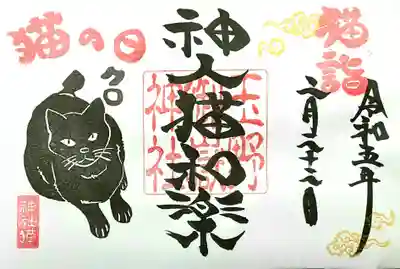 猫詣
令和五年
二月二十二日
神人猫和楽
玉野
御嶽
神社
猫の日
クロ